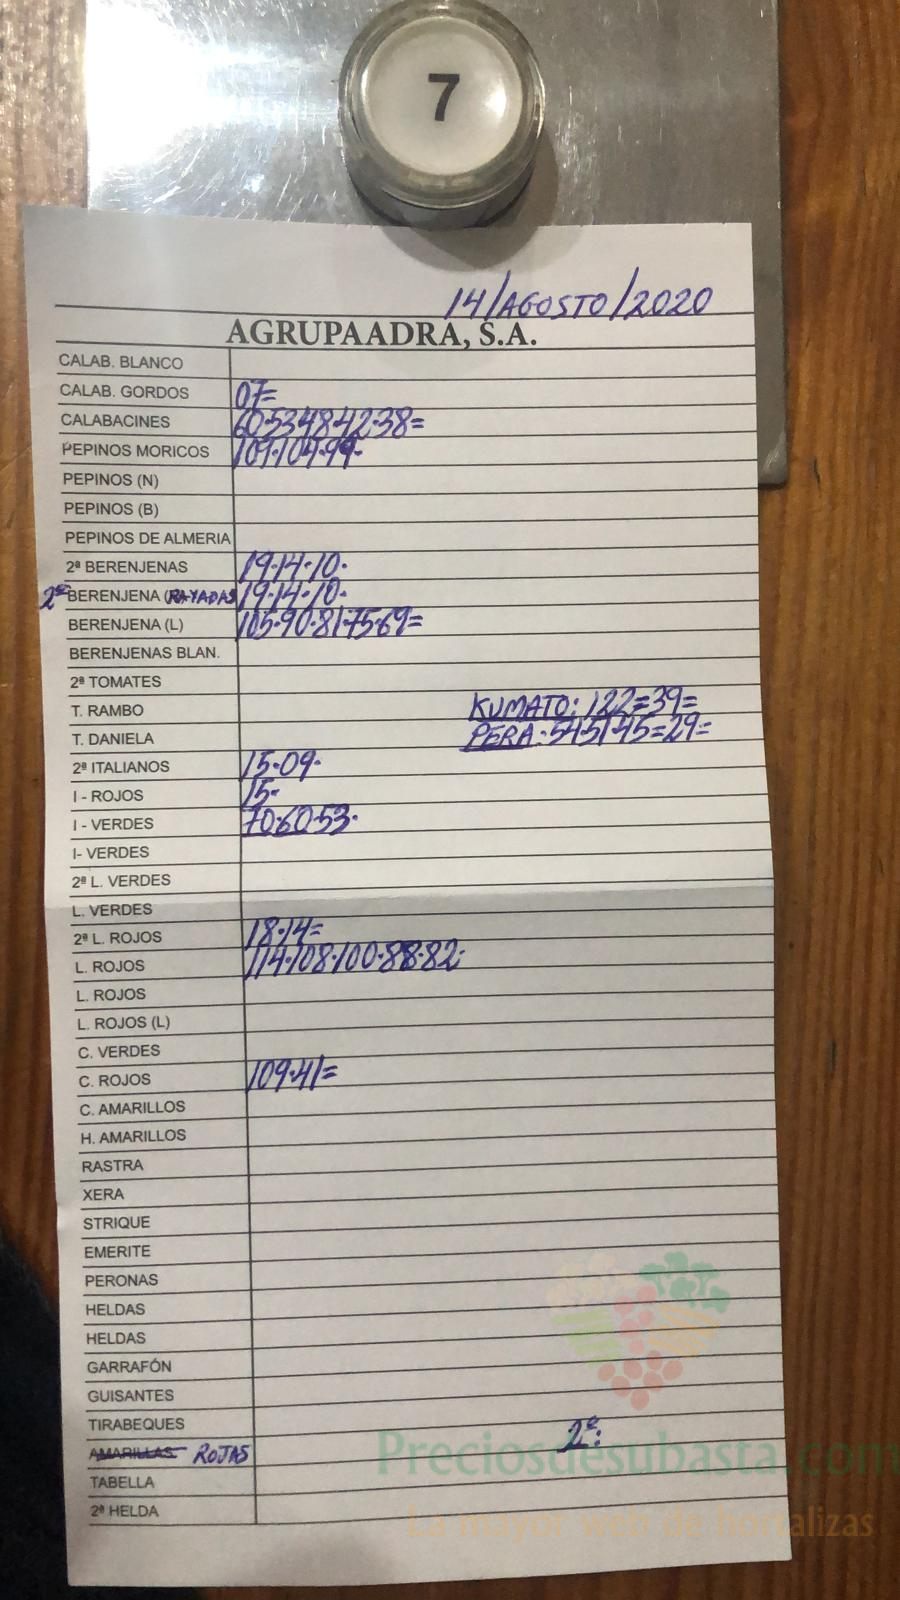 7
14/AGOSTO/2020
AGRUPAADRA, S.A.
CALAB. BLANCO
CALAB. GORDOS 07=
CALABACINES 60·53·48·42·38=
PEPINOS MORICOS 109·104·99·
PEPINOS (N)
PEPINOS (B)
PEPINOS DE ALMERIA
2ª BERENJENAS 19·14·10·
2ª BERENJENA (RAYADAS 19·14·10·
BERENJENA (L) 105·90·81·75·69=
BERENJENAS BLAN.
2ª TOMATES
T. RAMBO KUMATO: 122=39=
T. DANIELA PERA·54·51·45=29=
2ª ITALIANOS 15·09·
I - ROJOS 15·
I - VERDES 70·60·53·
I- VERDES
2ª L. VERDES
L. VERDES
2ª L. ROJOS 18·14=
L. ROJOS 114·108·100·88·82·
L. ROJOS
L. ROJOS (L)
C. VERDES
C. ROJOS 109·41=
C. AMARILLOS
H. AMARILLOS
RASTRA
XERA
STRIQUE
EMERITE
PERONAS
HELDAS
HELDAS
GARRAFÓN
GUISANTES
TIRABEQUES
AMARILLAS ROJAS 2ª:
TABELLA
2ª HELDA
Preciosdesubasta.com
La mayor web de hortalizas